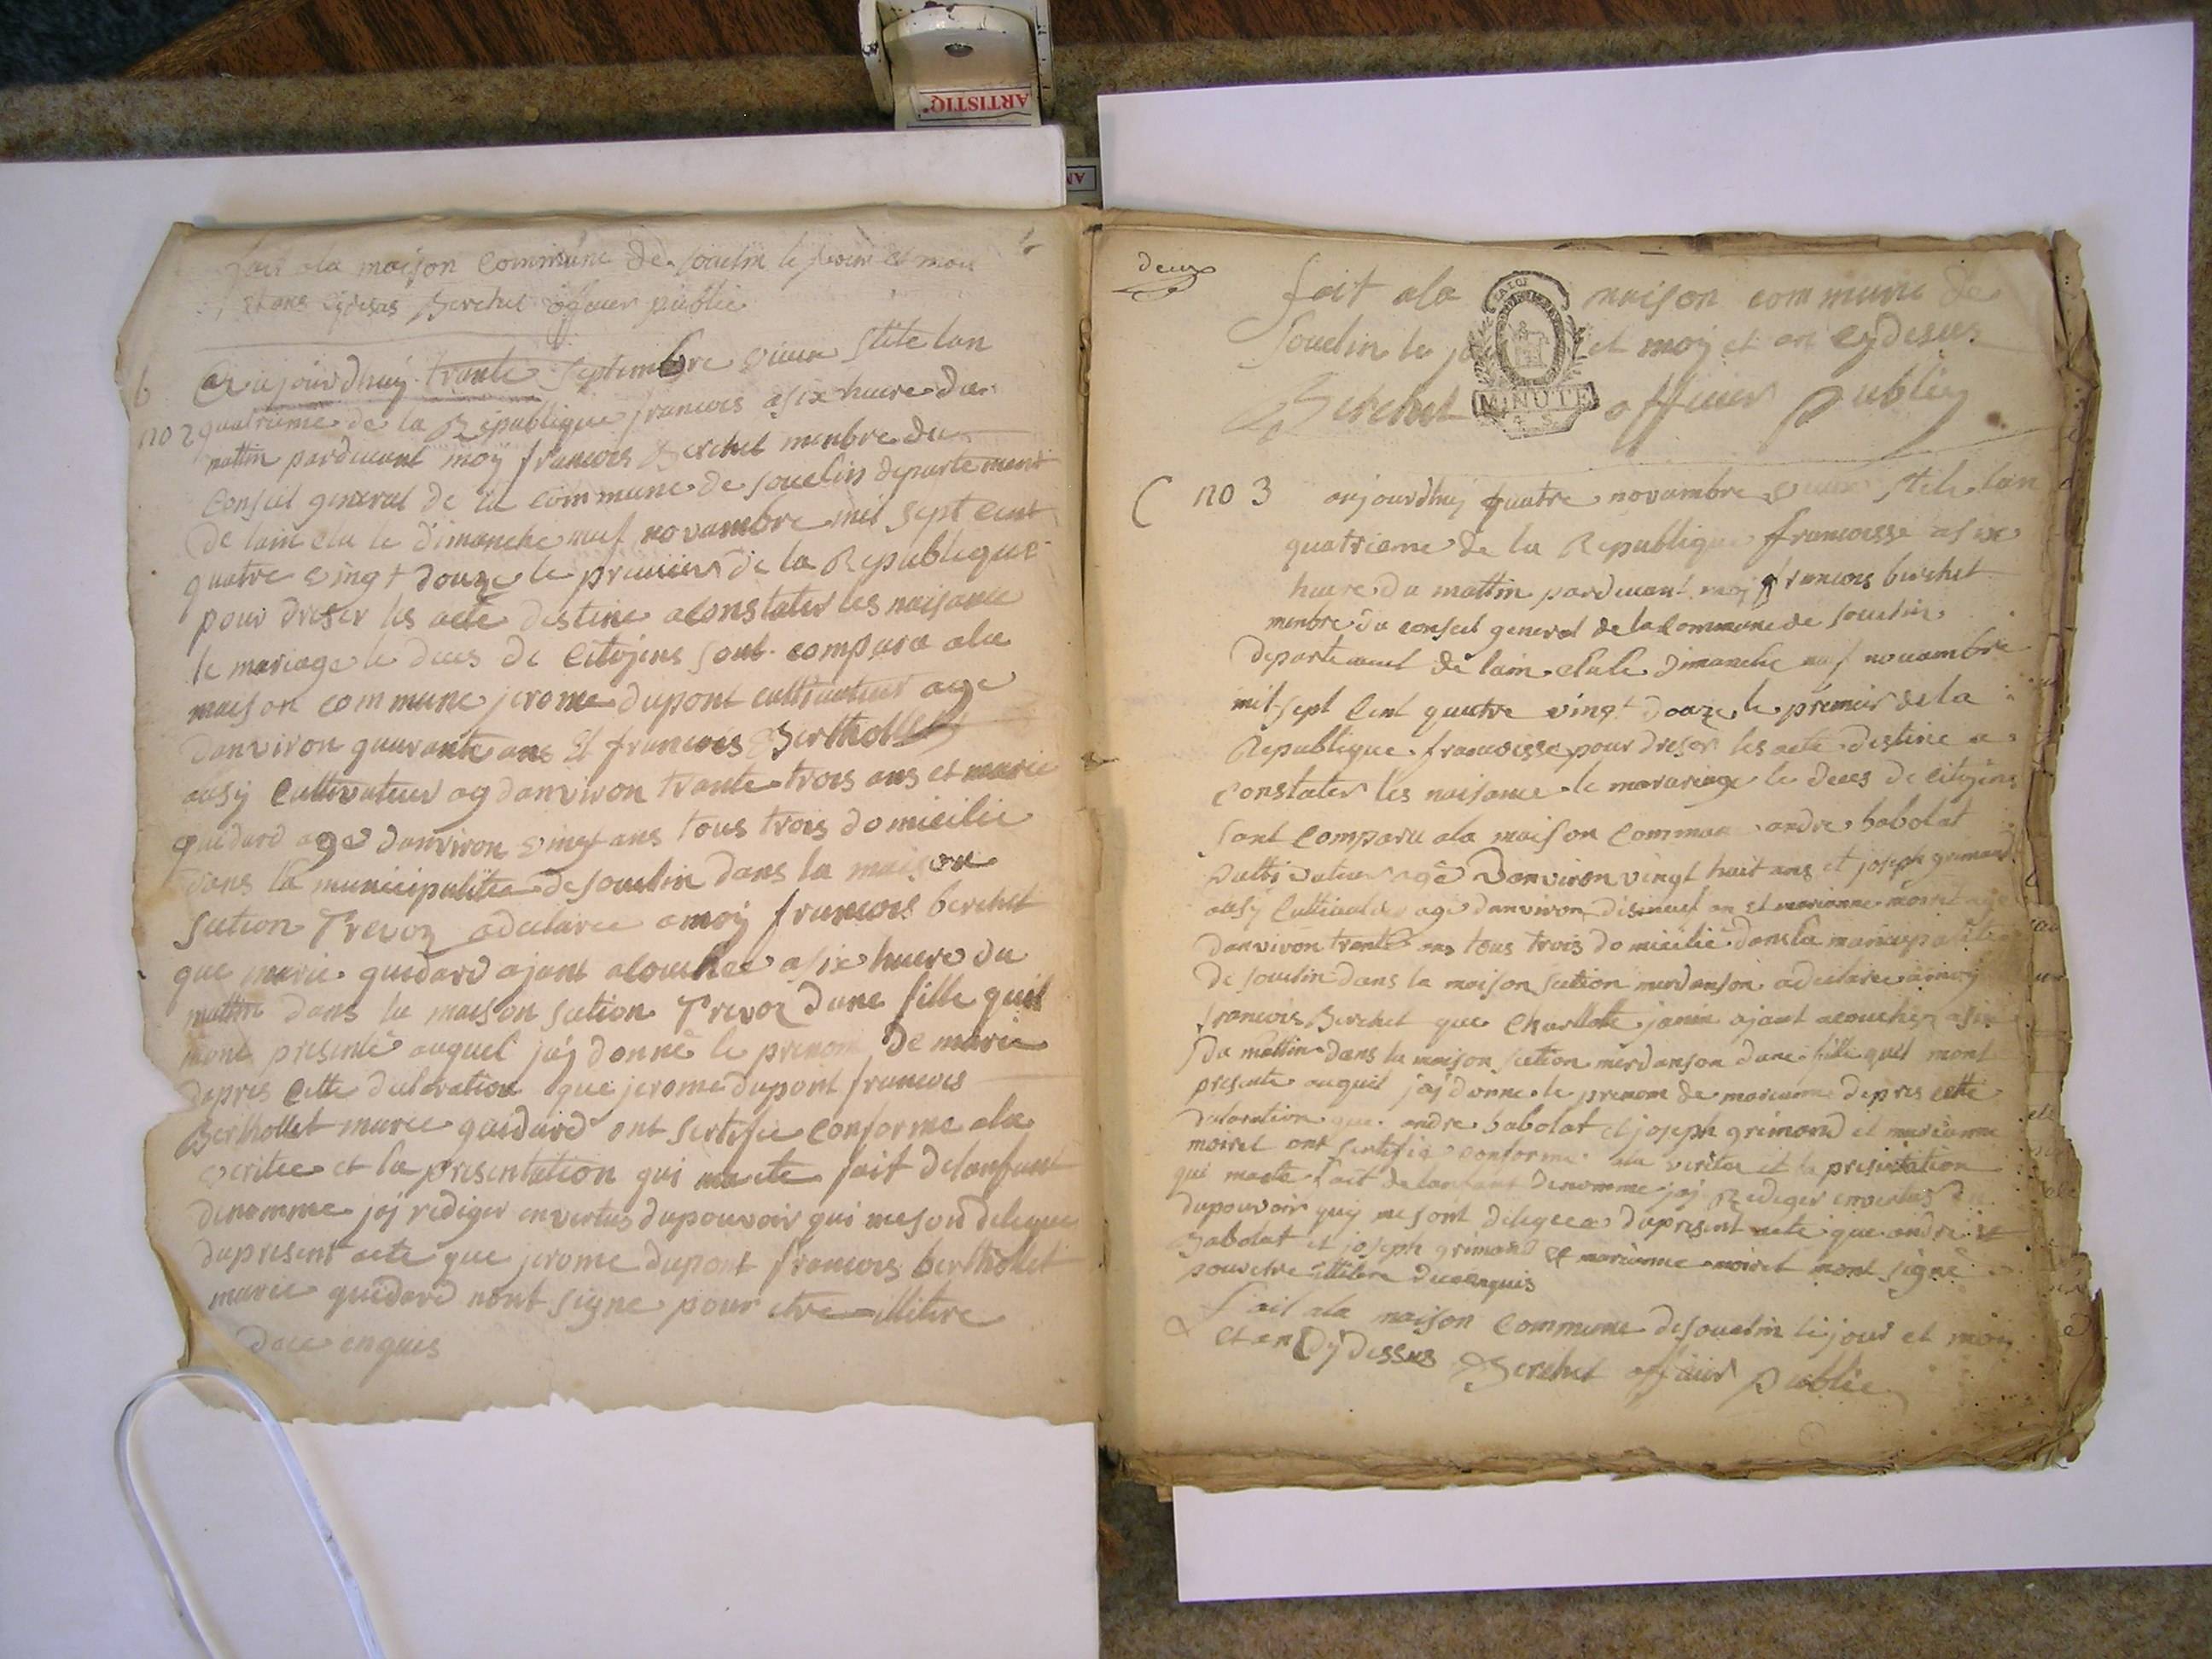 ARTISTIQ
fait ala maison Commune de souclin le jour et mois
et ans cydesus Berchet officier public
b Aujourdhuy trante septembre vieux stile lan
no 2 quatrieme de la Republique francois a six heure du
mattin parduant moy francois Berchet menbre du
Conseil general de la commune de souclin departement
de lain elu le dimanche neuf novambre mil sept cent
quatre vingt douze le premier de la Republique
pour dreser les acte destine aconstater les naisance
le mariage le deces de Citojens sont compara ala
maison commune jerome dupont cultivateur age
danviron quarante ans Et francois Berthollet
ausy Cultivateur ag danviron trante trois ans et marie
guedard age danviron vingt ans tous trois domicilie
dans la municipalitee de souclin dans la maison
section Trevoz adeclaree amoy francois berchet
que marie guedard ajant alouchee a six heure du
mattin dans la maison section Trevoz dune fille quil
mont presente auquel jaj donne le prenom De marie
dapres Cette declaration que jerome dupont francois
Berthollet marie guedard ont sertifie conforme ala
veritee et la presentation qui maete fait delanfant
denomme jaj rediger envertus dupouvoir qui me sont delegue
dupresent acte que jerome dupont francois berthollet
marie guedard nont signe pour etre illitere
dece enquis
deux
fait ala maison commune de
Souclin le jour et moy et an cydesus
MINUTE
Berchet officier Public
C no 3 aujourdhuj quatre novambre vieux stile lan
quatrieme de la Republique francoisse a six
heure du mattin parduant moj francois berchet
menbre du conseil general de la Commune de souclin
departement de lain elu le dimanche neuf novambre
mil sept Cent quatre vingt douze le premier de la
Republique francoisse pour dreser les acte destine a
constater les naisance le marariage le deces de citojens
sont Comparu ala maison Commune andre babolat
cultivateur age Danviron vingt huit ans et joseph grimand
ausy Cultivateur age danviron disneuf an et marianne moiret age
danviron trante ans tous trois domicilie dans la municipalite
de souclin dans la maison section merdanson adeclaree a moy
francois Berchet que Charlotte janin ajant acouchez a six
du mattin dans la maison section merdanson dune fille quil mont
presente auquel jaj donne le prenom de marianne depres cette
declaration que andre babolat et joseph grimand et marianne
moiret ont sertifie conforme ala veritee et la presentation
qui maete fait delanfant denomme jaj Rediger envertus du
dupouvoir quy me sont delegeee dupresent acte que andre
Babolat et joseph grimand et marianne moiret nont signe
pouretre illitere deceenquis
Fait ala maison Commune de souclin le jour et mois
et an Cydessus Berchet officier Public